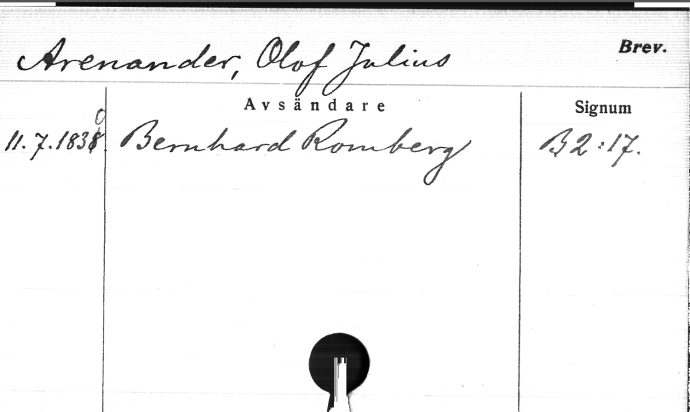 Arenander, Olof Julius Brev.
Avsändare Signum
11.7.1838. Bernhard Romberg B2:17.